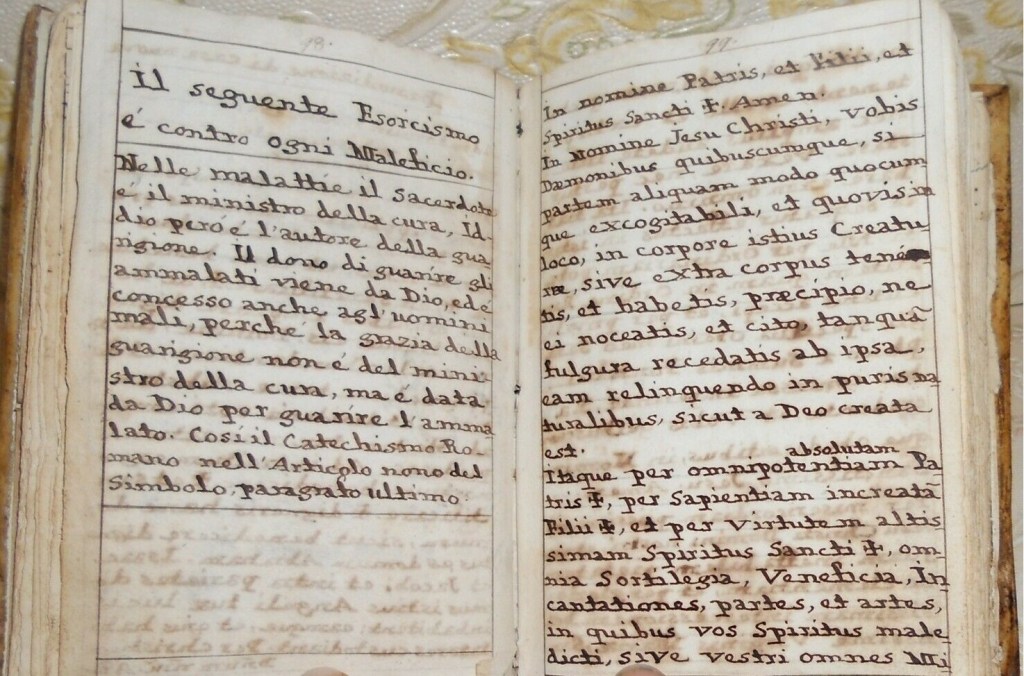 98.
Il seguente Esorcismo
é contro ogni Maleficio.
Nelle malattie il Sacerdote
é il ministro della cura, Id-
dio peró é l'autore della gua-
rigione. Il dono di guarire gli
ammalati viene da Dio, ed é
concesso anche agl'uomini
mali, perché la grazia della
guarigione non é del mini-
stro della cura, ma é data
da Dio per guarire l'amma
lato. Cosí il Catechismo Ro-
mano nell'Articolo nono del
Simbolo, paragrafo ultimo:
99.
In nomine Patris, et Filii, et
Spiritus Sancti ✝. Amen.
In Nomine Jesu Christi, vobis
Dæmonibus quibuscumque, si
partem aliquam modo quocum
que excogitabili, et quovis in
loco, in corpore istius Creatu
ræ, sive extra corpus tené
tis, et habetis, præcipio, ne
ei noceatis, et cito, tanquã
fulgura recedatis ab ipsa,
eam relinquendo in puris na
turalibus, sicut a Deo creata
est.
absolutam
Itaque per omnipotentiam Pa
tris ✝, per Sapientiam increatã
Filii ✝, et per Virtutem altis
simam Spiritus Sancti ✝, om
nia Sortilegia, Veneficia, In
cantationes, partes, et artes,
in quibus vos Spiritus male
dicti, sive vestri omnes Mi